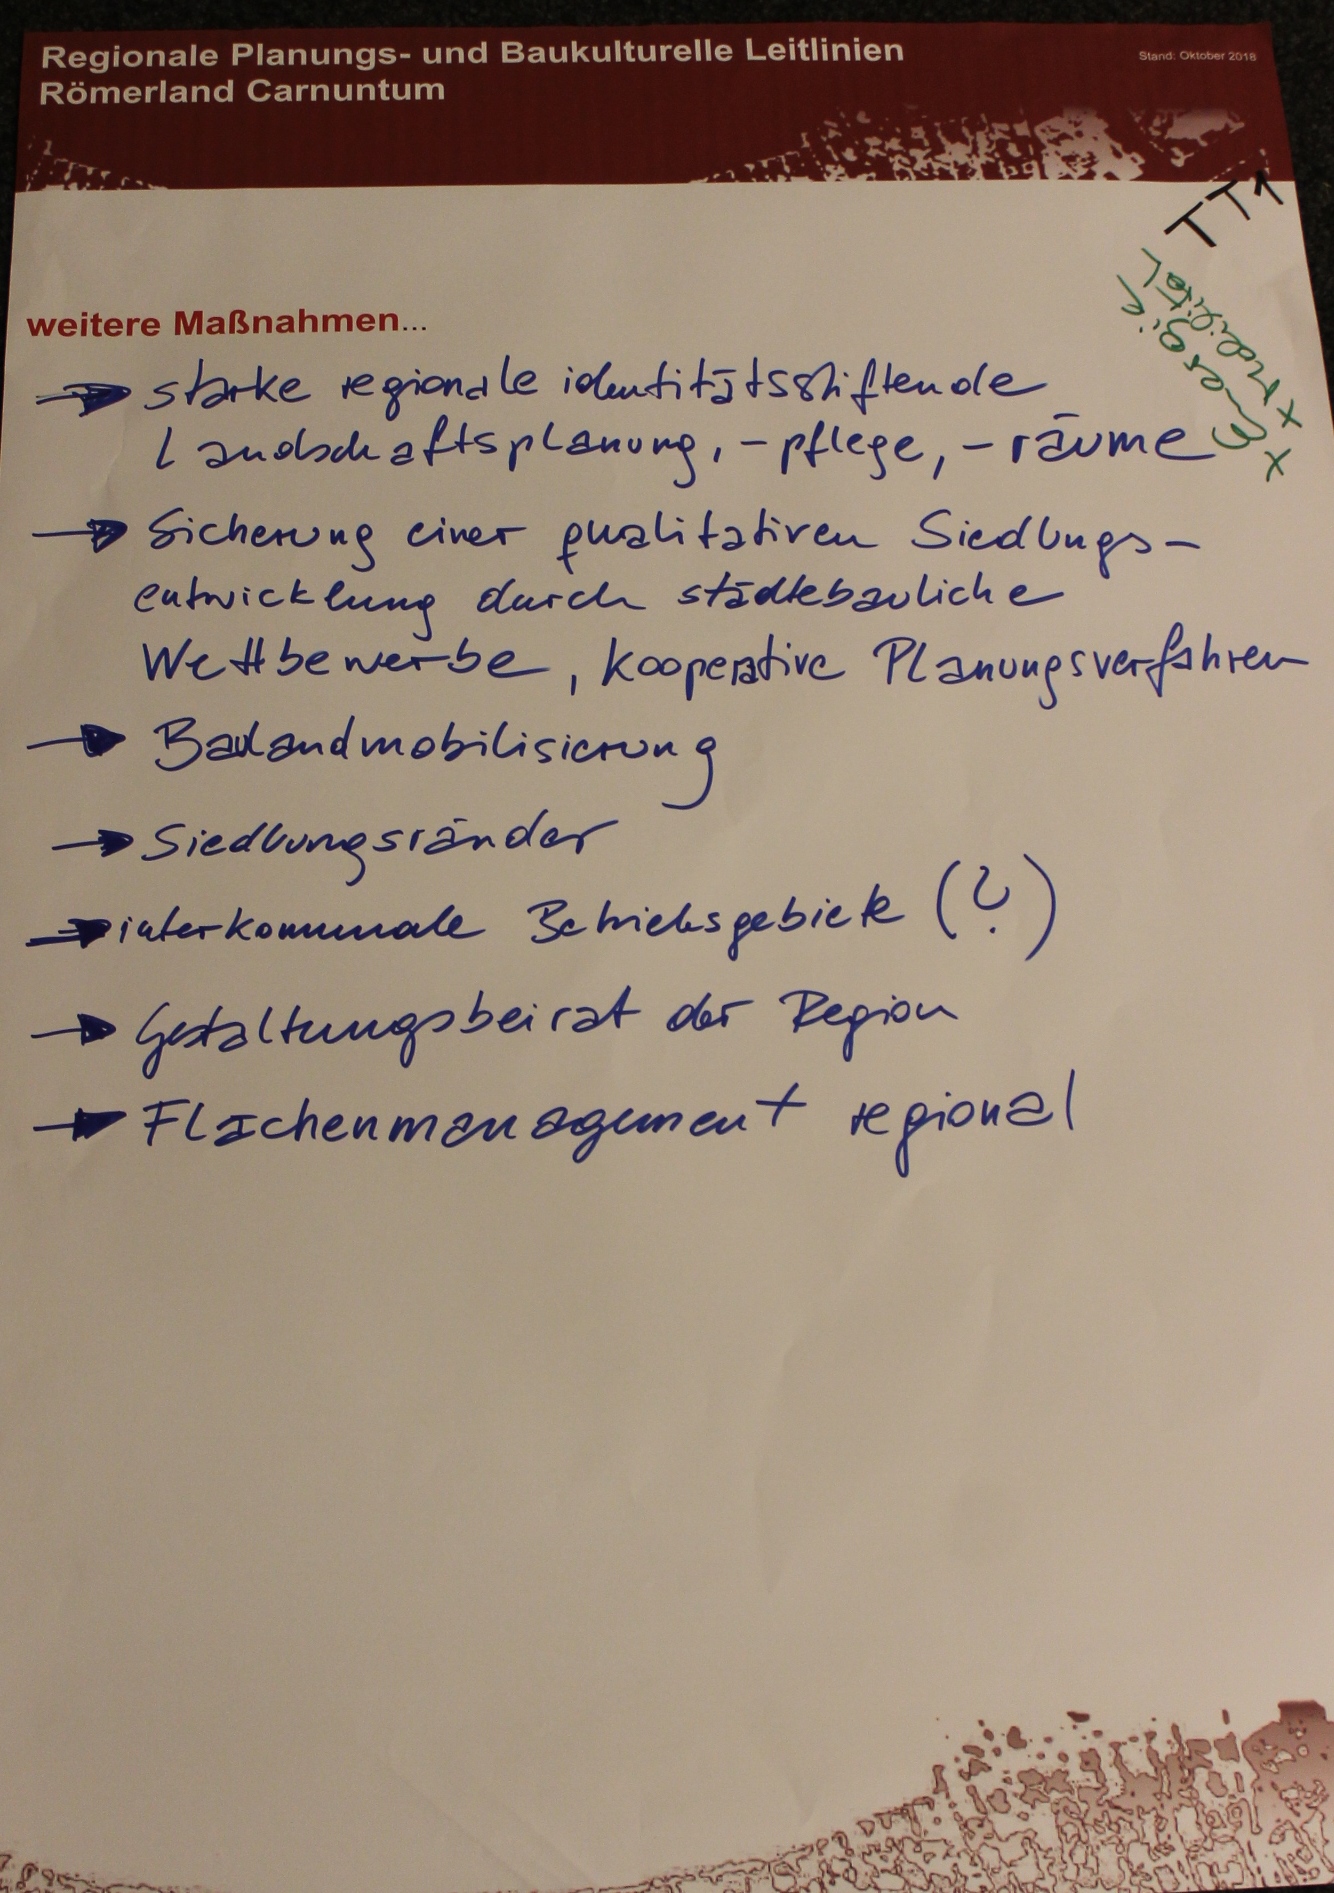 Regionale Planungs- und Baukulturelle Leitlinien
Römerland Carnuntum
Stand: Oktober 2018
TT1
weitere Maßnahmen...
→ starke regionale identitätsstiftende
Landschaftsplanung, -pflege, -räume
→ Sicherung einer qualitativen Siedlungs-
entwicklung durch städtebauliche
Wettbewerbe, kooperative Planungsverfahren
→ Baulandmobilisierung
→ Siedlungsränder
→ interkommunale Betriebsgebiete (?)
→ Gestaltungsbeirat der Region
→ Flächenmanagement regional
x Energie,
x